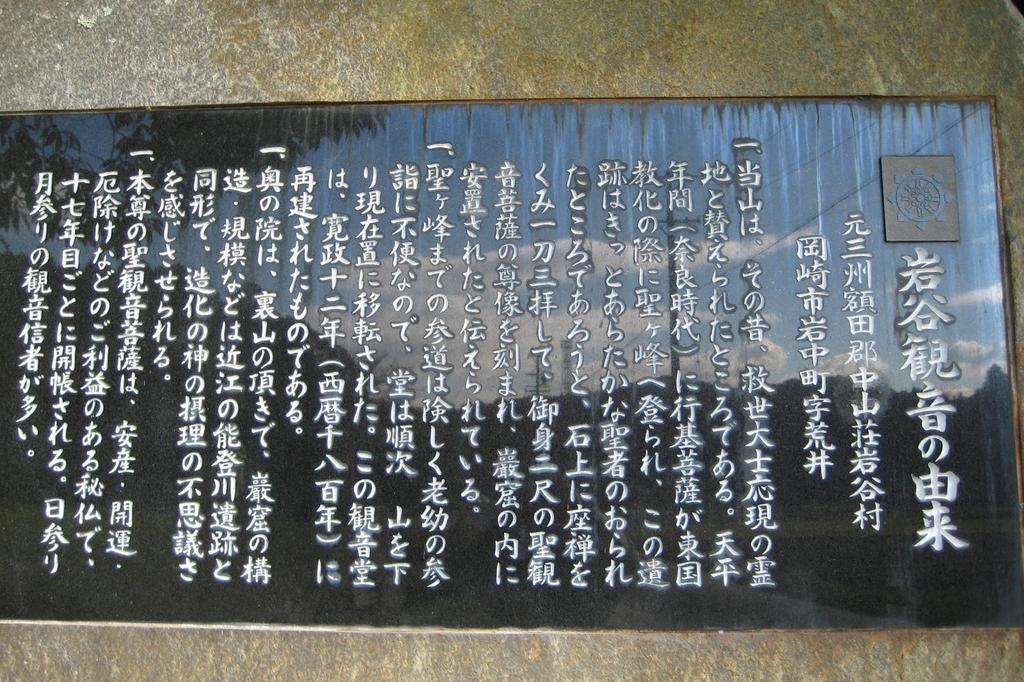 岩谷観音の由来
元三州額田郡中山荘岩谷村
岡崎市岩中町字荒井
一、当山は、その昔、救世大士応現の霊
地と賛えられたところである。天平
年間（奈良時代）に行基菩薩が東国
教化の際に聖ヶ峰へ登られ、この遺
跡はきっとあらたかな聖者のおられ
たところであろうと、石上に座禅を
くみ一刀三拝して、御身二尺の聖観
音菩薩の尊像を刻まれ、巌窟の内に
安置されたと伝えられている。
一、聖ヶ峰までの参道は険しく老幼の参
詣に不便なので、堂は順次 山を下
り現在置に移転された。この観音堂
は、寛政十二年（西暦千八百年）に
再建されたものである。
一、奥の院は、裏山の頂きで、巌窟の構
造・規模などは近江の能登川遺跡と
同形で、造化の神の摂理の不思議さ
を感じさせられる。
一、本尊の聖観音菩薩は、安産・開運・
厄除けなどのご利益のある秘仏で、
十七年目ごとに開帳される。日参り
月参りの観音信者が多い。